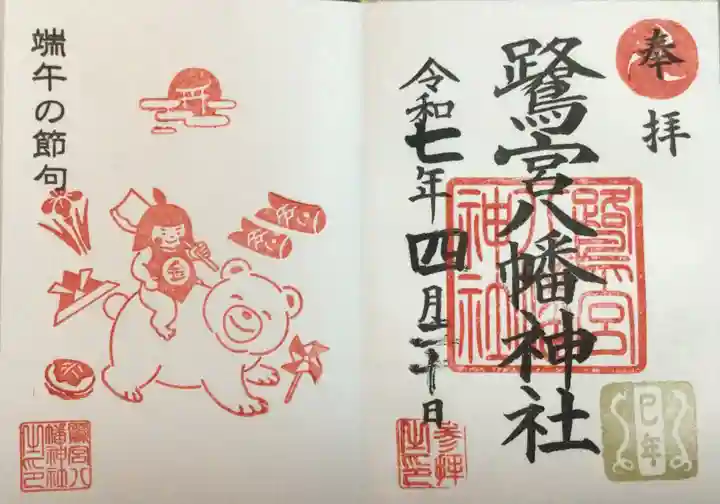 奉拝
鷺宮八幡神社
令和七年四月二十日
鷺宮
八幡
神社
巳年
参拝
之印
端午の節句
金
鷺宮八
幡神社
之印